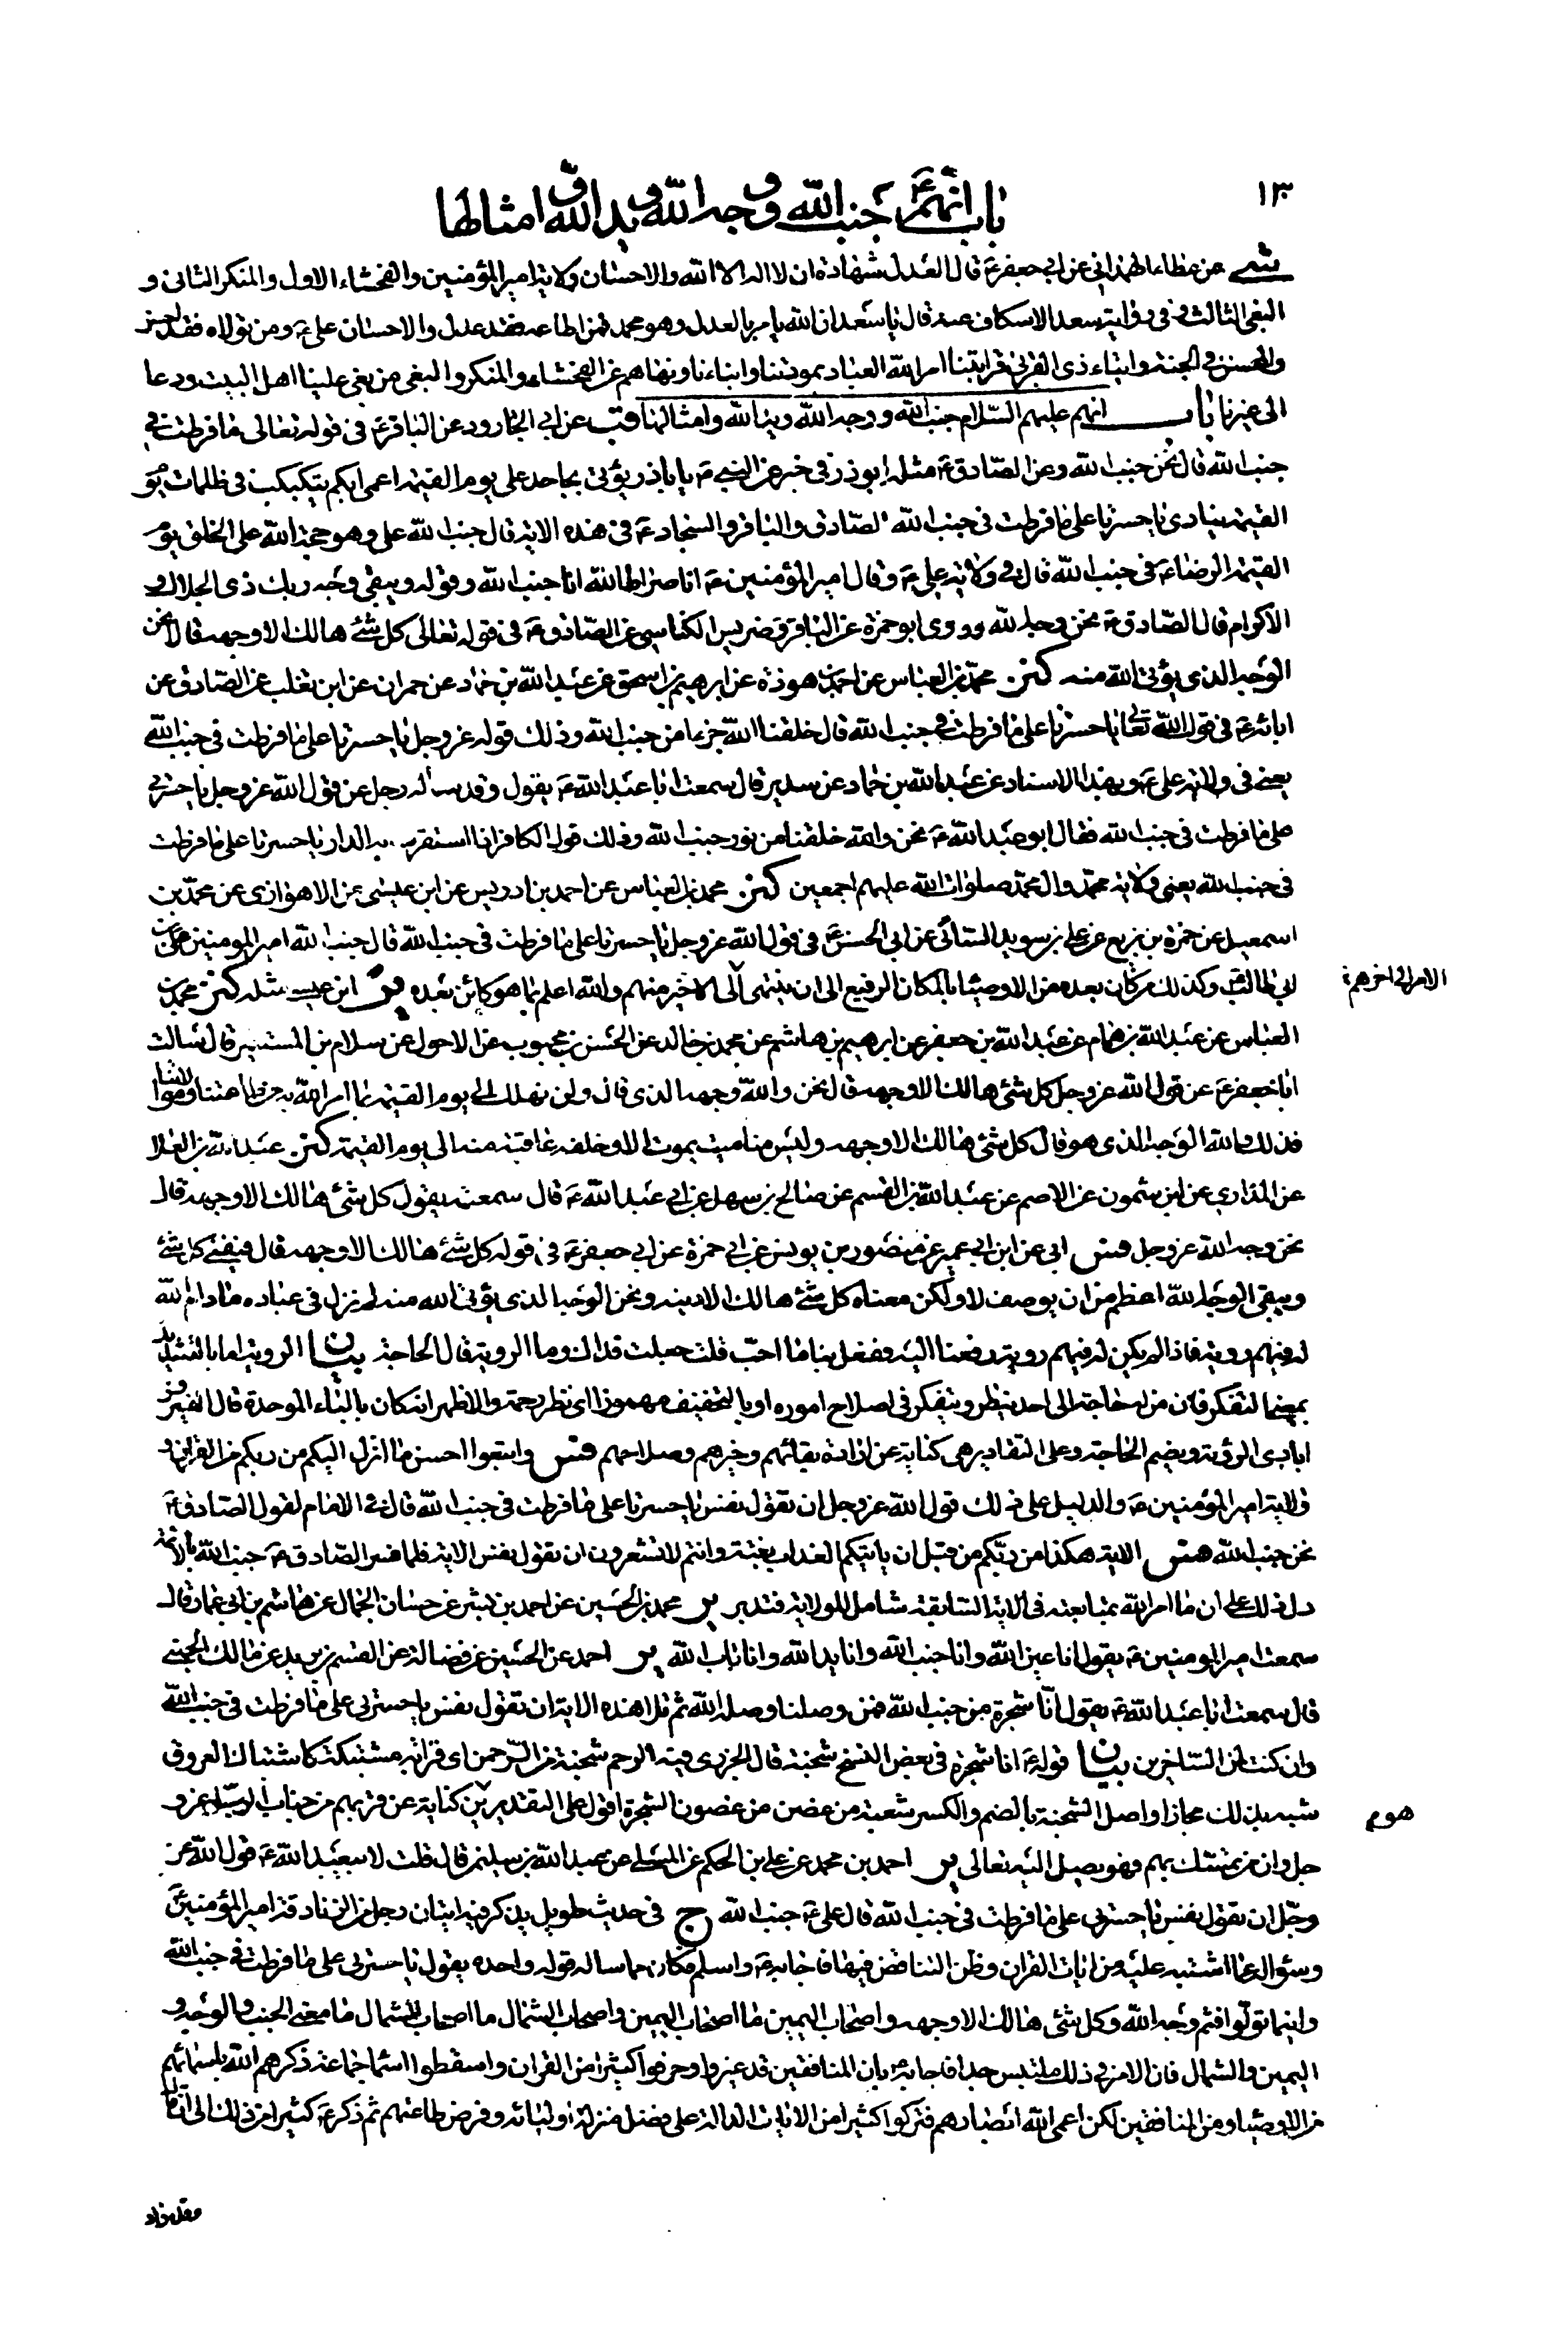 ١٣٠
باب انهم ع جنب الله و وجه الله و يد الله و امثالها
شى عن عطاء الهمدانى عن ابى جعفر ع قال العدل شهادة ان لا اله الا الله والاحسان ولاية امير المؤمنين والفحشاء الاول والمنكر الثانى و
البغى الثالث و فى رواية سعد الاسكاف عنه قال يا سعد ان الله يامر بالعدل وهو محمد فمن اطاعه فقد عدل والاحسان على ع ومن تولاه فقد احسن
والمحسن فى الجنة وايتاء ذى القربى قرابتنا امر الله العباد بمودتنا وايتاءنا ونهاهم عن الفحشاء والمنكر والبغى من بغى علينا اهل البيت ودعا
الى غيرنا باب انهم عليهم السلام جنب الله ووجه الله ويد الله وامثالها قب عن ابى الجارود عن الباقر ع فى قوله تعالى ما فرطت فى
جنب الله قال نحن جنب الله وعن الصادق ع مثله ابو ذر فى خبر عن النبى ص يا باذر يؤتى بجاحد على يوم القيمة اعمى ابكم يتكبكب فى ظلمات يوم
القيمة ينادى يا حسرتا على ما فرطت فى جنب الله الصادق والباقر والسجاد ع فى هذه الاية قال جنب الله على وهو حجة الله على الخلق يوم
القيمة الرضا ع فى جنب الله قال فى ولاية على ع وقال امير المؤمنين ع انا صراط الله انا جنب الله وقوله ويبقى وجه ربك ذى الجلال و
الاكرام قال الصادق ع نحن وجه الله وروى ابو حمزة عن الباقر و ضريس الكناسى عن الصادق ع فى قوله تعالى كل شئ هالك الا وجهه قالا نحن
الوجه الذى يؤتى الله منه كنز محمد بن العباس عن احمد بن هوذة عن ابرهيم بن اسحق عن عبد الله بن حماد عن حمران عن ابن تغلب عن الصادق عن
ابائه ع فى قول الله تعالى يا حسرتا على ما فرطت فى جنب الله قال خلقنا الله جزءا من جنب الله وذلك قوله عز وجل يا حسرتا على ما فرطت فى جنب الله
يعنى فى ولاية على ع وبهذا الاسناد عن عبد الله بن حماد عن سدير قال سمعت ابا عبد الله ع يقول وقد ساله رجل عن قول الله عز وجل يا حسرتى
على ما فرطت فى جنب الله فقال ابو عبد الله ع نحن والله خلقنا من نور جنب الله وذلك قول الكافر اذا استقرت به الدار يا حسرتا على ما فرطت
فى جنب الله يعنى ولاية محمد وال محمد صلوات الله عليهم اجمعين كنز محمد بن العباس عن احمد بن ادريس عن ابن عيسى عن الاهوازى عن محمد بن
اسمعيل عن حمزة بن بزيع عن على بن سويد السائى عن ابى الحسن ع فى قول الله عز وجل يا حسرتا على ما فرطت فى جنب الله قال جنب الله امير المومنين على بن
ابى طالب وكذلك من كان بعده من الاوصياء بالمكان الرفيع الى ان ينتهى الى الاخير منهم والله اعلم بما هو كائن بعده ير ابن عيسى مثله كنز محمد بن
الامر الى اخرهم
العباس عن عبد الله بن همام عن عبد الله بن جعفر عن ابرهيم بن هاشم عن محمد بن خالد عن الحسن بن محبوب عن الاحول عن سلام بن المستنير قال سالت
ابا جعفر ع عن قول الله عز وجل كل شئ هالك الا وجهه قال نحن والله وجهه الذى قال ولن نهلك الى يوم القيمة بما امر الله به من طاعتنا وموالاتنا
فذلك والله الوجه الذى هو قال كل شئ هالك الا وجهه وليس منا ميت يموت الا وخلفه عاقبة منه الى يوم القيمة كنز عبد الله بن العلا
عن المذارى عن ابن شمون عن الاصم عن عبد الله بن القسم عن صالح بن سهل عن ابى عبد الله ع قال سمعته يقول كل شئ هالك الا وجهه قال
نحن وجه الله عز وجل فس ابى عن ابن ابى عمير عن منصور بن يونس عن ابى حمزة عن ابى جعفر ع فى قوله كل شئ هالك الا وجهه قال فيفنى كل شئ
ويبقى الوجه الله اعظم من ان يوصف لا ولكن معناه كل شئ هالك الا دينه ونحن الوجه الذى يؤتى الله منه لم نزل فى عباده ما دام لله
له فيهم روية فاذا لم يكن له فيهم روية رفعنا اليه ففعل بنا ما احب قلت جعلت فداك وما الروية قال الحاجة بيان الروية اما بالتشديد
بمعنى التفكر فان من له حاجة الى احد ينظر ويتفكر فى اصلاح اموره او بالتخفيف مهموزا اى نظر رحمة والاظهر انه كان بالباء الموحدة قال الفيروز
ابادى الروبة ويضم الحاجة وعلى التقادير هى كناية عن ارادة بقائهم وخيرهم وصلاحهم فس واتبعوا احسن ما انزل اليكم من ربكم من القران و
ولاية امير المؤمنين ع والدليل على ذلك قول الله عز وجل ان تقول نفس يا حسرتا على ما فرطت فى جنب الله قال فى الامام لقول الصادق ع
نحن جنب الله فس الاية هكذا من ربكم من قبل ان ياتيكم العذاب بغتة وانتم لا تشعرون ان تقول نفس الاية فلما فسر الصادق ع جنب الله بالائمة
دل ذلك على ان ما امر الله بمتابعته فى الاية السابقة شامل للولاية فتدبر ير محمد بن الحسين عن احمد بن بشر عن حسان الجمال عن هاشم بن ابى عمار قال
سمعت امير المومنين ع يقول انا عين الله وانا جنب الله وانا يد الله وانا باب الله ير احمد عن الحسين عن فضالة عن القسم بن بريد عن مالك الجهنى
قال سمعت ابا عبد الله ع يقول انا شجرة من جنب الله فمن وصلنا وصله الله ثم تلا هذه الاية ان تقول نفس يا حسرتى على ما فرطت فى جنب الله
وان كنت لمن الساخرين بيان قوله ع انا شجرة فى بعض النسخ شجنة قال الجزرى فيه الرحم شجنة من الرحمن اى قرابة مشتبكة كاشتباك العروق
شبهه بذلك مجازا واصل الشجنة بالضم والكسر شعبة من غصن من غصون الشجرة اقول على التقديرين كناية عن قربهم من جناب الرب عز و
هوم
جل وان من تمسك بهم فهو يصل اليه تعالى ير احمد بن محمد عن على بن الحكم عن المسلى عن عبد الله بن سليمن قال قلت لابى عبد الله ع قول الله عز
وجل ان تقول نفس يا حسرتى على ما فرطت فى جنب الله قال على ع جنب الله ج فى حديث طويل يذكر فيه اتيان رجل من الزنادقة امير المؤمنين ع
وسؤاله عما اشتبه عليه من ايات القران وظن التناقض فيها فاجابه ع واسلم فكان مما ساله قوله واجده يقول يا حسرتى على ما فرطت فى جنب الله
واينما تولوا فثم وجه الله وكل شئ هالك الا وجهه واصحاب اليمين ما اصحاب اليمين واصحاب الشمال ما اصحاب الشمال ما معنى الجنب والوجه و
اليمين والشمال فان الامر فى ذلك ملتبس جدا فاجابه ع بان المنافقين قد غيروا وحرفوا كثيرا من القران واسقطوا اسماء جماعة ذكرهم الله باسمائهم
من الاوصياء ومن المنافقين لكن اعمى الله ابصارهم فتركوا كثيرا من الايات الدالة على فضل منزلة اوليائه وفرض طاعتهم ثم ذكر ع كثيرا من ذلك الى ان قال
وقد زاد